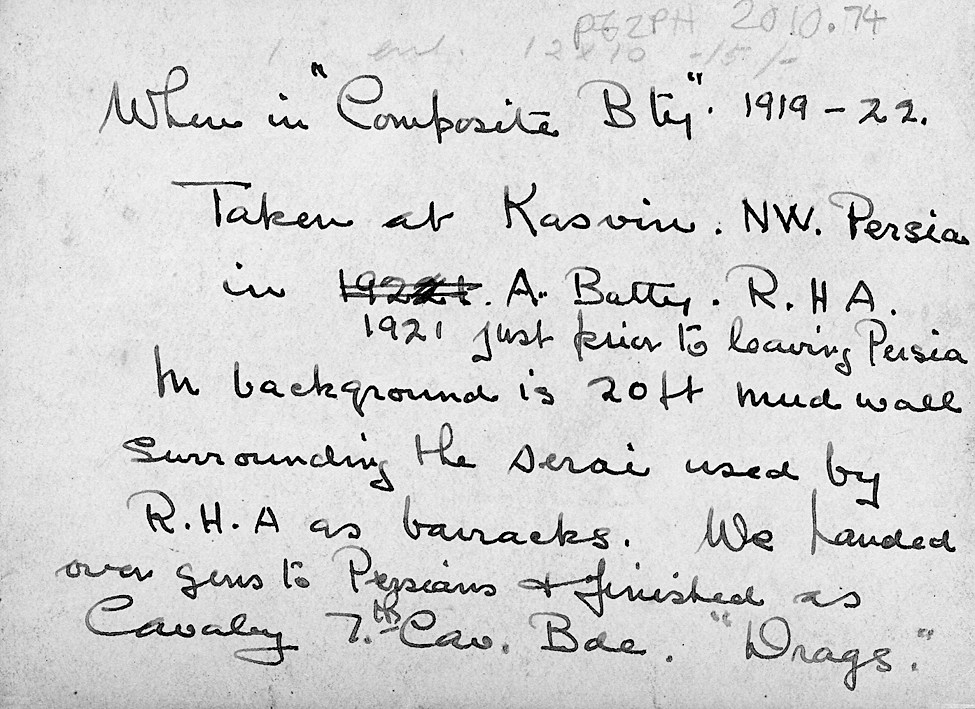 PGZPH 20.10.74
1 enl. 12 x 10 -15/-
When in "Composite Bty". 1919 - 22.
Taken at Kasvin. NW. Persia
in . A. Battey. R. H A.
1921 just prior to leaving Persia
In background is 20ft mud wall
surrounding the serai used by
R.H.A as barracks. We handed
over guns to Persians & finished as
Cavalry 7.th Cav. Bde. "Drags."